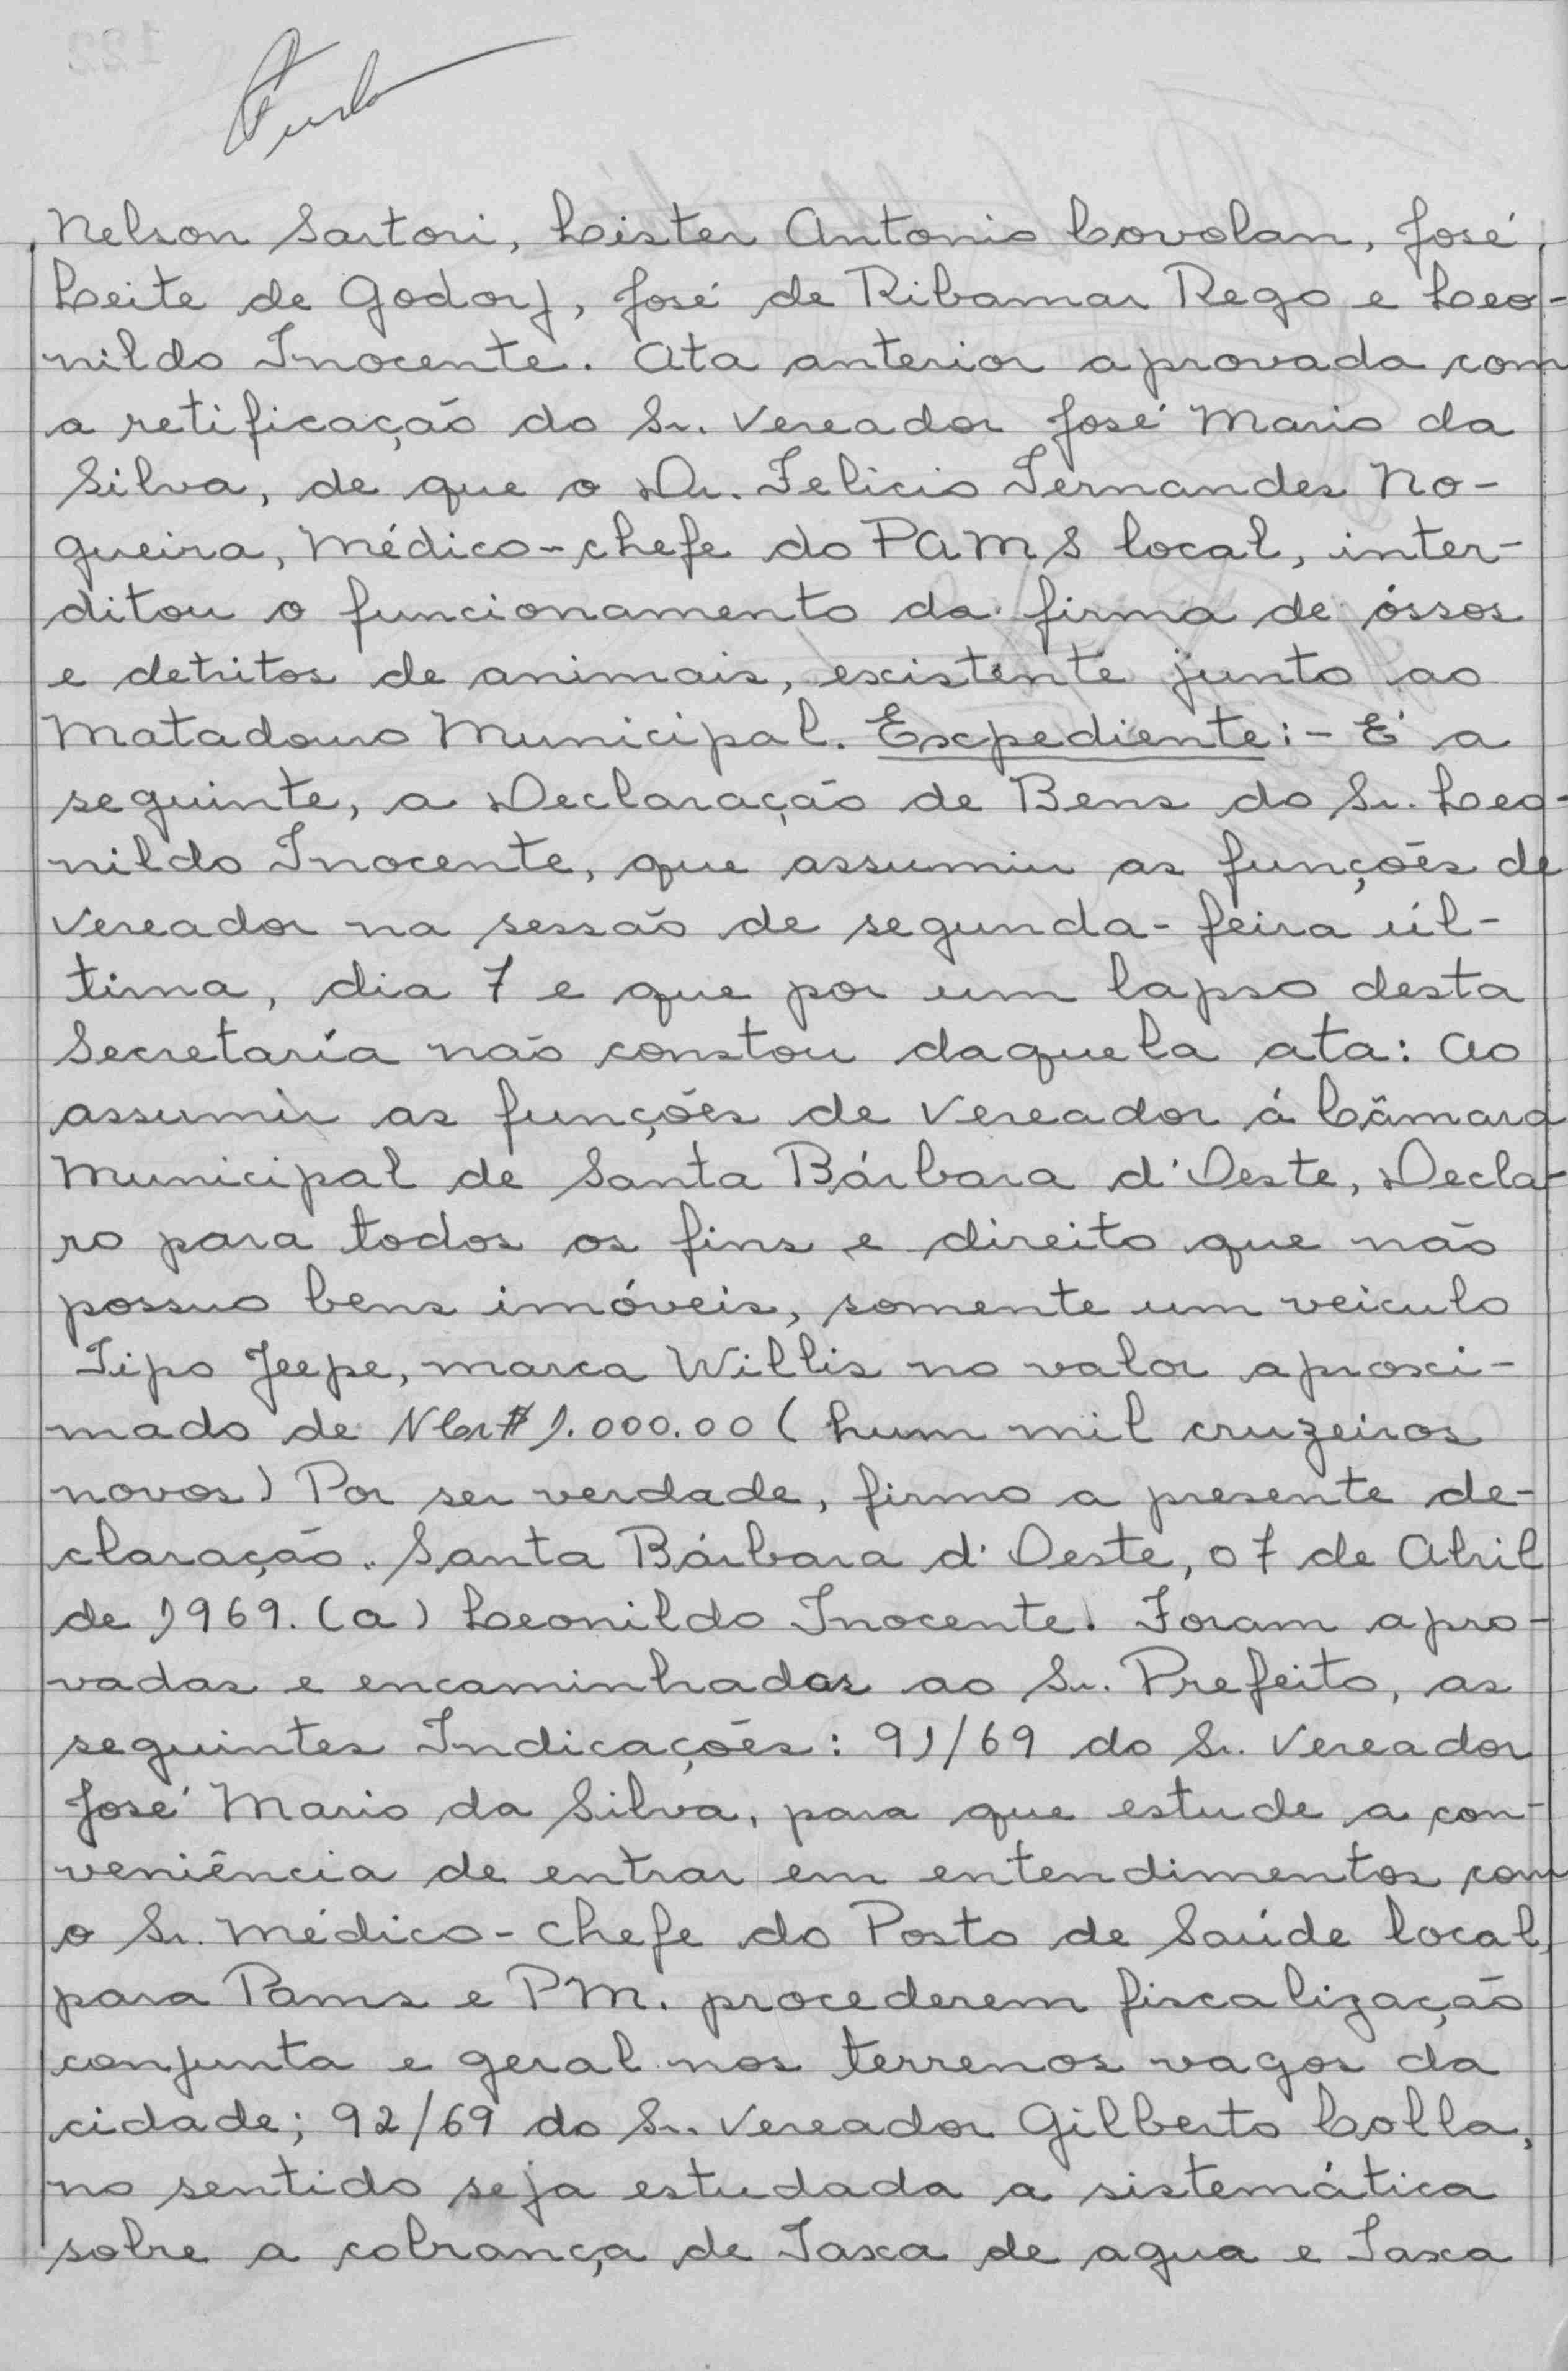 Nelson Sartori, Lister Antonio Covolan, José
Leite de Godoy, José de Ribamar Rego e Leo-
nildo Inocente. Ata anterior aprovada com
a retificação do Sr. Vereador José Mario da
Silva, de que o Dr. Felicio Fernandes No-
gueira, Médico-chefe do PAMS local, inter-
ditou o funcionamento da firma de óssos
e detritos de animais, existente junto ao
Matadouro Municipal. Expediente:- É a
seguinte, a Declaração de Bens do Sr. Leo-
nildo Inocente, que assumiu as funções de
Vereador na sessão de segunda-feira úl-
tima, dia 7 e que por um lapso desta
Secretaría não constou daquela ata: Ao
assumir as funções de Vereador á Câmara
Municipal de Santa Bárbara d'Oeste, Decla-
ro para todos os fins e direito que não
possuo bens imóveis, somente um veiculo
Tipo Jeepe, marca Willis no valor aproxi-
mado de NCr$ 1.000.00 (hum mil cruzeiros
novos) Por ser verdade, firmo a presente de-
claração. Santa Bárbara d'Oeste, 07 de Abril
de 1969. (a) Leonildo Inocente. Foram apro-
vadas e encaminhadas ao Sr. Prefeito, as
seguintes Indicações: 91/69 do Sr. Vereador
José Mario da Silva, para que estude a con-
veniência de entrar em entendimentos com
o Sr. Médico-Chefe do Posto de Saúde local,
para Pams e PM. procederem fiscalização
conjunta e geral nos terrenos vagos da
cidade; 92/69 do Sr. Vereador Gilberto Colla,
no sentido seja estudada a sistemática
sobre a cobrança de Taxa de agua e Taxa